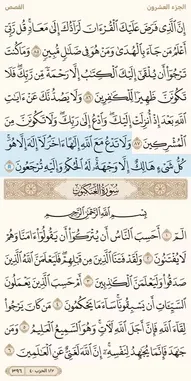 الجزء العشرون
القصص
إِنَّ ٱلَّذِى فَرَضَ عَلَيْكَ ٱلْقُرْءَانَ لَرَآدُّكَ إِلَىٰ مَعَادٍ ۚ قُل رَّبِّىٓ
أَعْلَمُ مَن جَآءَ بِٱلْهُدَىٰ وَمَنْ هُوَ فِى ضَلَـٰلٍ مُّبِينٍ ٨٥ وَمَا كُنتَ
تَرْجُوٓا۟ أَن يُلْقَىٰٓ إِلَيْكَ ٱلْكِتَـٰبُ إِلَّا رَحْمَةً مِّن رَّبِّكَ ۖ فَلَا
تَكُونَنَّ ظَهِيرًا لِّلْكَـٰفِرِينَ ٨٦ وَلَا يَصُدُّنَّكَ عَنْ ءَايَـٰتِ
ٱللَّهِ بَعْدَ إِذْ أُنزِلَتْ إِلَيْكَ ۖ وَٱدْعُ إِلَىٰ رَبِّكَ ۖ وَلَا تَكُونَنَّ مِنَ
ٱلْمُشْرِكِينَ ٨٧ وَلَا تَدْعُ مَعَ ٱللَّهِ إِلَـٰهًا ءَاخَرَ ۘ لَآ إِلَـٰهَ إِلَّا هُوَ ۚ
كُلُّ شَىْءٍ هَالِكٌ إِلَّا وَجْهَهُۥ ۚ لَهُ ٱلْحُكْمُ وَإِلَيْهِ تُرْجَعُونَ ٨٨
سُورَةُ العَنكَبُوتِ
بِسْمِ ٱللَّهِ ٱلرَّحْمَـٰنِ ٱلرَّحِيمِ
الٓمٓ ١ أَحَسِبَ ٱلنَّاسُ أَن يُتْرَكُوٓا۟ أَن يَقُولُوٓا۟ ءَامَنَّا وَهُمْ
لَا يُفْتَنُونَ ٢ وَلَقَدْ فَتَنَّا ٱلَّذِينَ مِن قَبْلِهِمْ ۖ فَلَيَعْلَمَنَّ ٱللَّهُ ٱلَّذِينَ
صَدَقُوا۟ وَلَيَعْلَمَنَّ ٱلْكَـٰذِبِينَ ٣ أَمْ حَسِبَ ٱلَّذِينَ يَعْمَلُونَ
ٱلسَّيِّـَٔاتِ أَن يَسْبِقُونَا ۚ سَآءَ مَا يَحْكُمُونَ ٤ مَن كَانَ يَرْجُوا۟
لِقَآءَ ٱللَّهِ فَإِنَّ أَجَلَ ٱللَّهِ لَـَٔاتٍ ۚ وَهُوَ ٱلسَّمِيعُ ٱلْعَلِيمُ ٥ وَمَن
جَـٰهَدَ فَإِنَّمَا يُجَـٰهِدُ لِنَفْسِهِۦٓ ۚ إِنَّ ٱللَّهَ لَغَنِىٌّ عَنِ ٱلْعَـٰلَمِينَ ٦
١/٢ الحزب ٤٠
٣٩٦